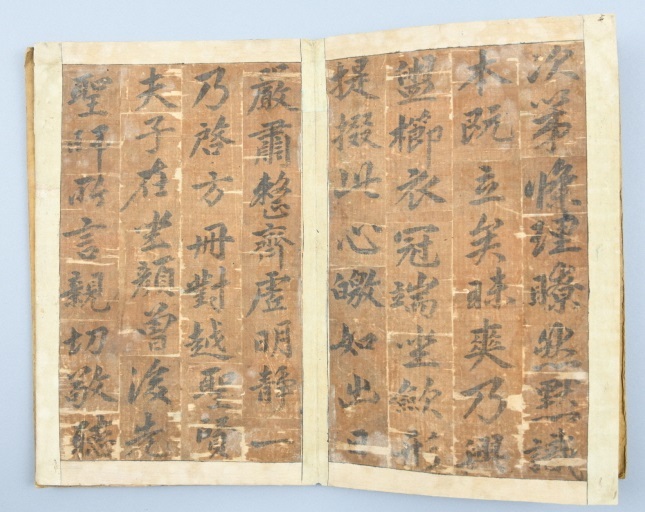 次第條理瞭然默識
本既立矣昧爽乃興
盥櫛衣冠端坐斂形
提掇此心皦如出日
嚴肅整齊虛明靜一
乃啓方冊對越聖賢
夫子在坐顏曾後先
聖師所言親切敬聽